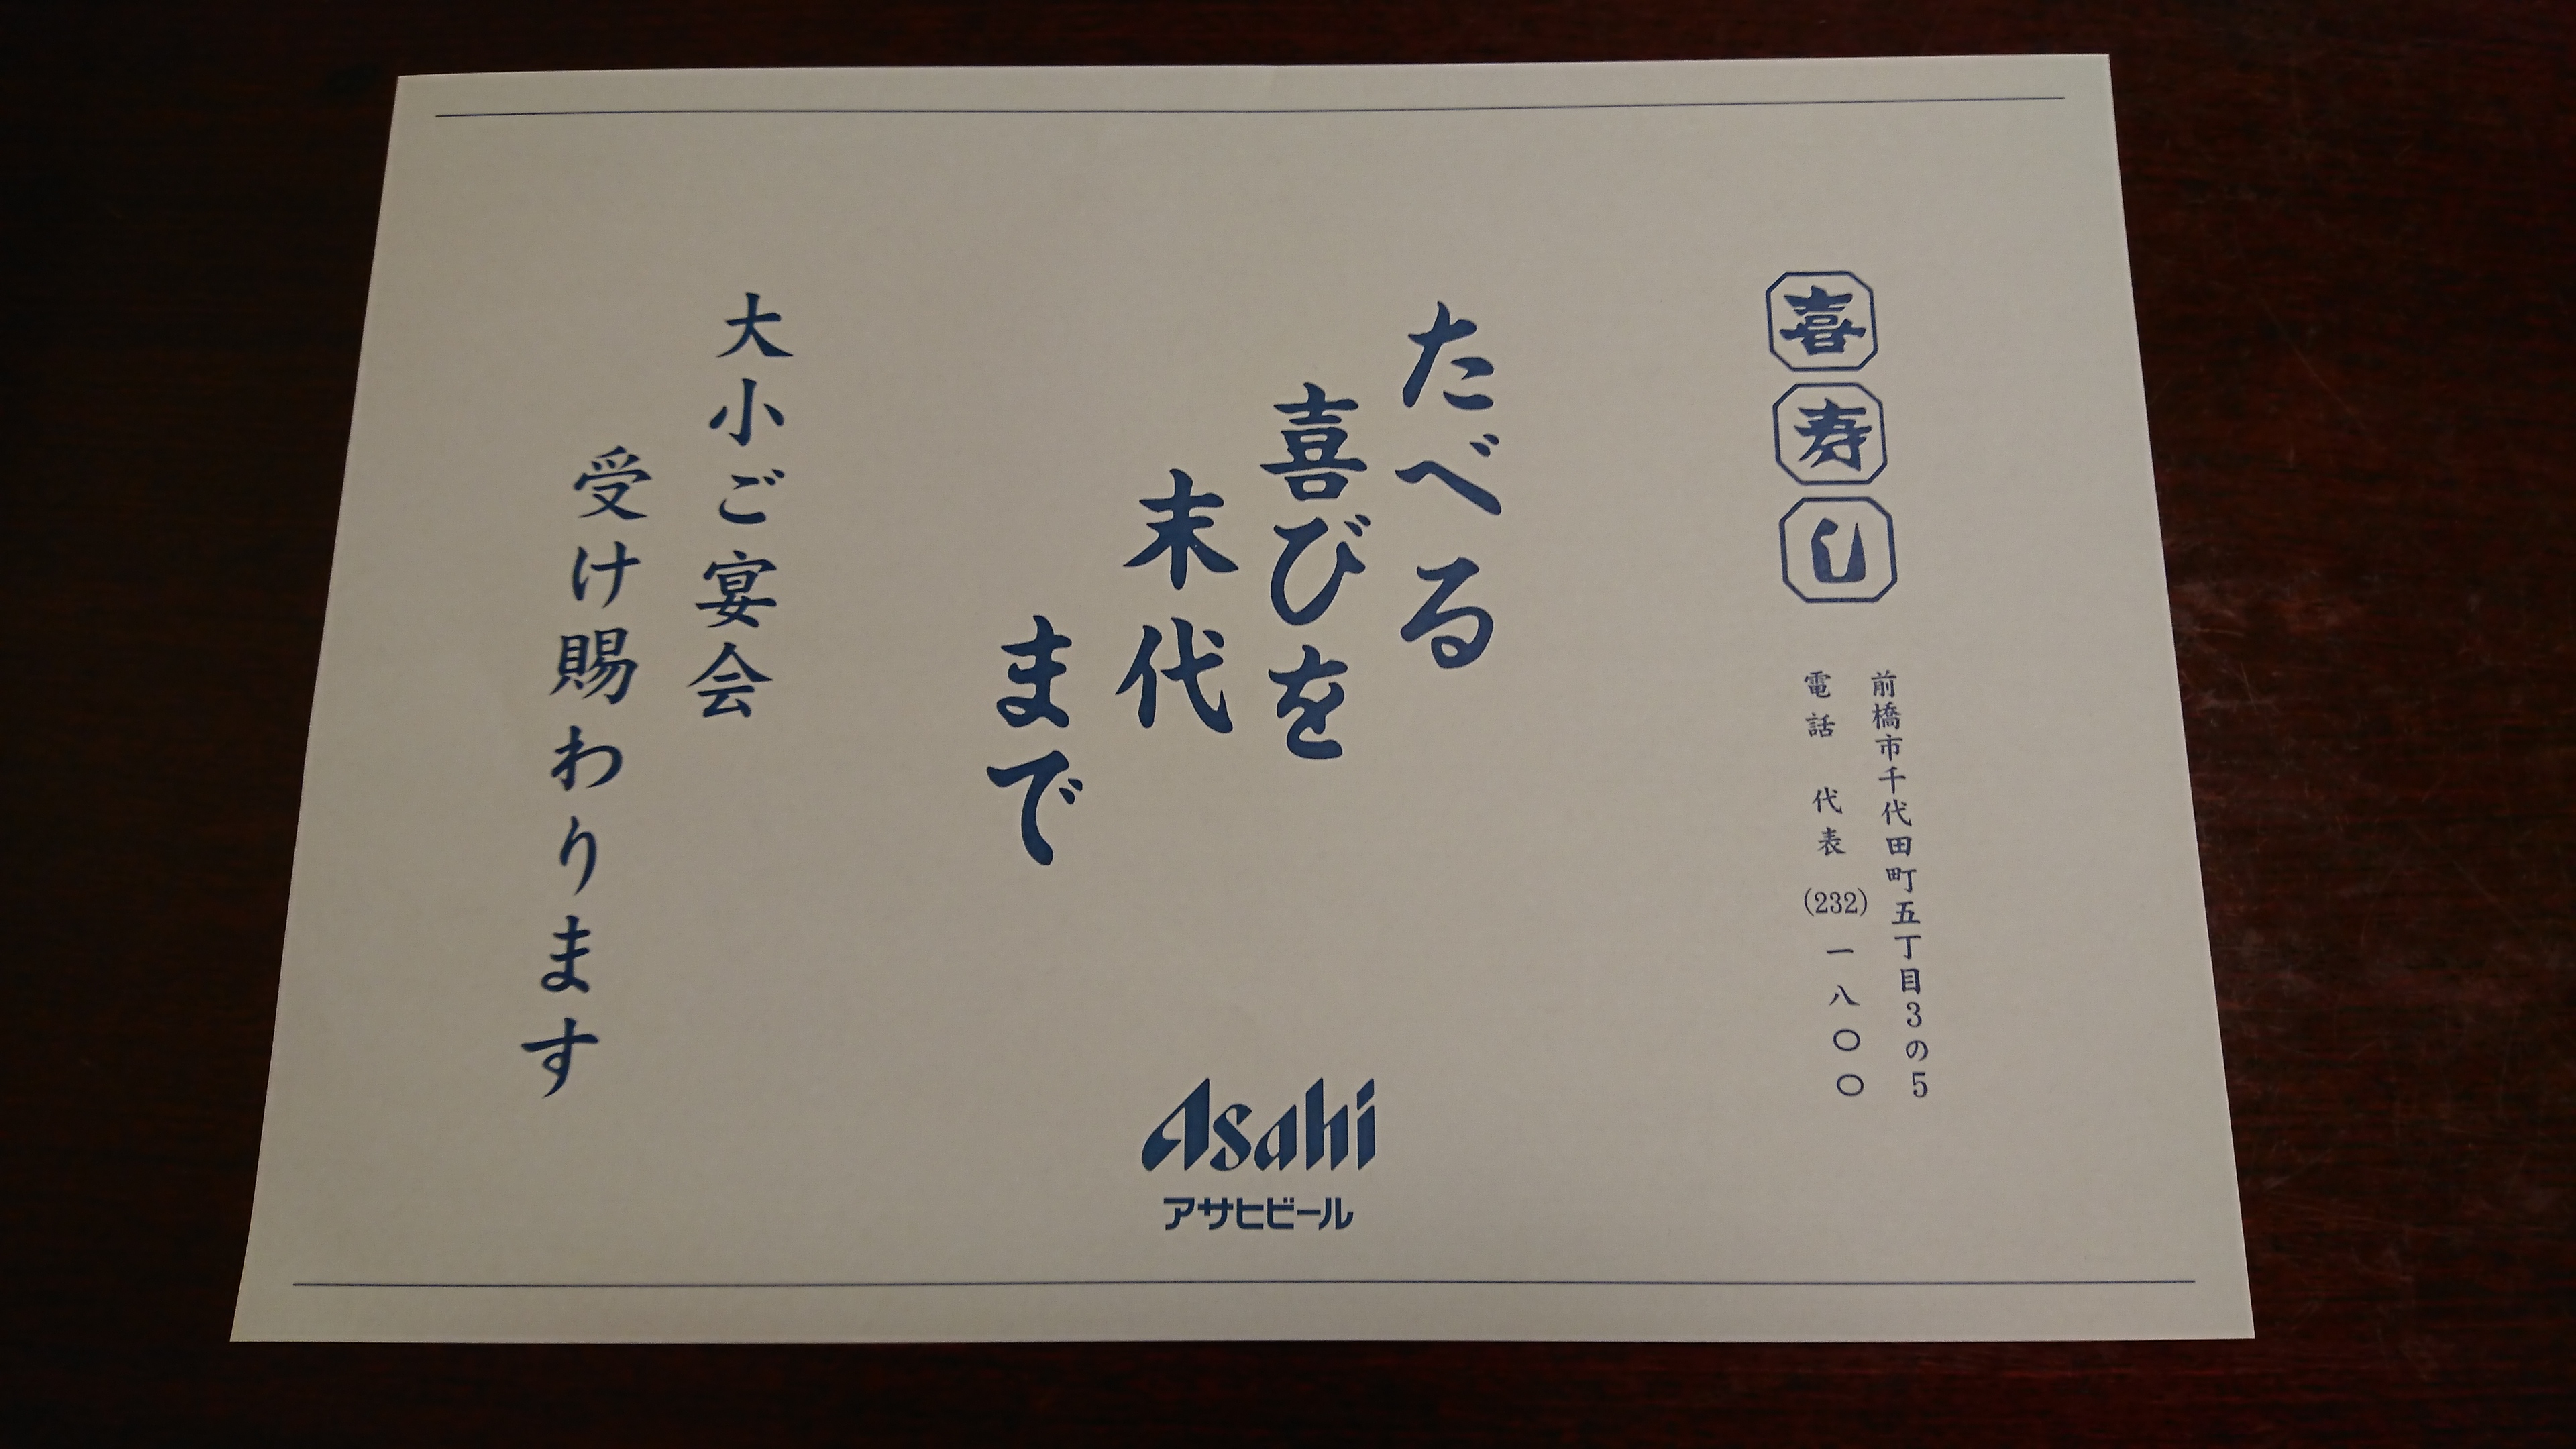 喜寿し
前橋市千代田町五丁目3の5
電話 代表 (232) 一八〇〇
たべる
喜びを
末代
まで
大小ご宴会
受け賜わります
Asahi
アサヒビール